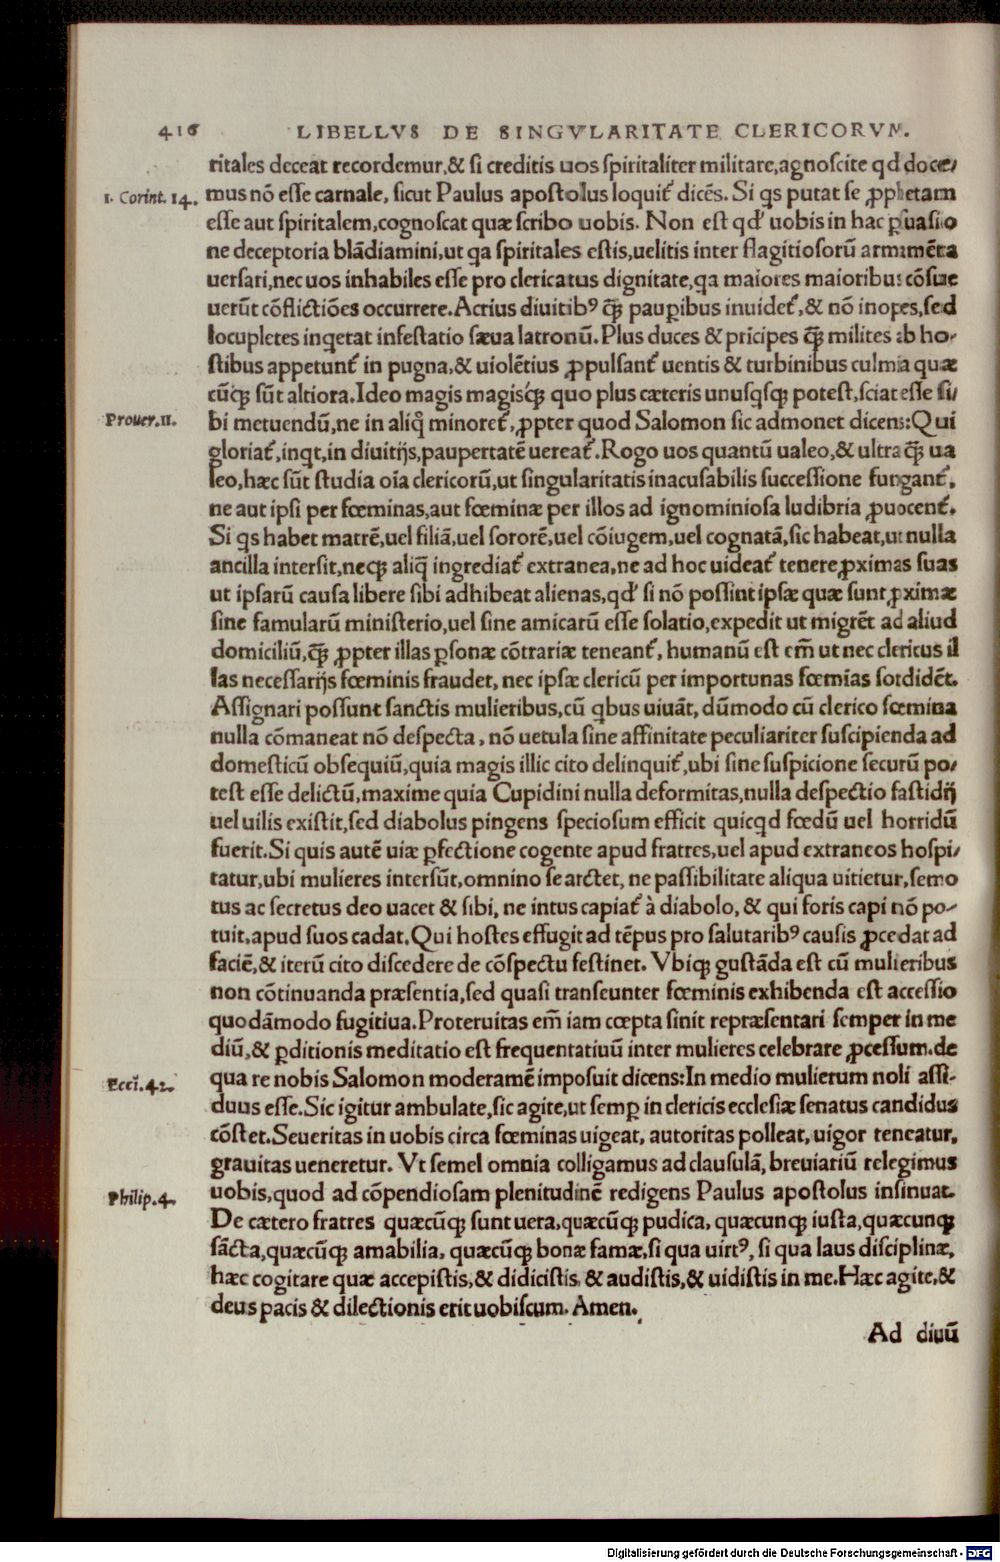 416 LIBELLVS DE SINGVLARITATE CLERICORVM.
ritales deceat recordemur,& si creditis uos spiritaliter militare,agnoscite qd doce/
1. Corint. 14. mus nõ esse carnale, sicut Paulus apostolus loquit᷑ dicẽs. Si qs putat se ꝓphetam
esse aut spiritalem,cognoscat quæ scribo uobis. Non est qđ uobis in hac ꝑsuasio
ne deceptoria blãdiamini,ut qa spiritales estis,uelitis inter flagitiosorũ armamẽta
uersari,nec uos inhabiles esse pro clericatus dignitate,qa maiores maioribus cõsue
uerũt cõflictiões occurrere.Acrius diuitibꝰ q̃ꝫ pauꝑibus inuidet᷑,& nõ inopes,sed
locupletes inqetat infestatio sæua latronũ.Plus duces & prĩcipes q̃ꝫ milites ab ho-
stibus appetunt᷑ in pugna,& uiolẽtius ꝓpulsant᷑ uentis & turbinibus culmia quæ
cũqꝫ sũt altiora.Ideo magis magisq́ꝫ quo plus cæteris unusqsqꝫ potest,sciat esse si/
Prouer.11. bi metuendũ,ne in aliq̃ minoret᷑,ꝓpter quod Salomon sic admonet dicens:Qui
gloriat᷑,inqt,in diuitijs,paupertatẽ uereat᷑.Rogo uos quantũ ualeo,& ultra q̃ꝫ ua
leo,hæc sũt studia oĩa clericorũ,ut singularitatis inacusabilis successione fungant᷑,
ne aut ipsi per fœminas,aut fœminæ per illos ad ignominiosa ludibria ꝓuocent᷑.
Si qs habet matrẽ,uel filiã,uel sororẽ,uel cõiugem,uel cognatã,sic habeat,ut nulla
ancilla intersit,neqꝫ aliq̃ ingrediat᷑ extranea,ne ad hoc uideat᷑ tenere ꝓximas suas
ut ipsarũ causa libere sibi adhibeat alienas,qđ si nõ possint ipsæ quæ sunt ꝓximæ
sine famularũ ministerio,uel sine amicarũ esse solatio,expedit ut migrẽt ad aliud
domiciliũ,q̃ꝫ ꝓpter illas ꝑsonæ cõtrariæ teneant᷑, humanũ est em̃ ut nec clericus il
las necessarijs fœminis fraudet, nec ipsæ clericũ per importunas fœmĩas sordidẽt.
Assignari possunt sanctis mulieribus,cũ qbus uiuãt, dũmodo cũ clerico fœmina
nulla cõmaneat nõ despecta, nõ uetula sine affinitate peculiariter suscipienda ad
domesticũ obsequiũ,quia magis illic cito delinquit᷑,ubi sine suspicione securũ po/
test esse delictũ,maxime quia Cupidini nulla deformitas,nulla despectio fastidij
uel uilis existit,sed diabolus pingens speciosum efficit quicqd fœdũ uel horridũ
fuerit.Si quis autẽ uiæ ꝑfectione cogente apud fratres,uel apud extraneos hospi/
tatur,ubi mulieres intersũt,omnino se arctet, ne passibilitate aliqua uitietur,semo
tus ac secretus deo uacet & sibi, ne intus capiat᷑ à diabolo, & qui foris capi nõ po-
tuit,apud suos cadat.Qui hostes effugit ad tẽpus pro salutaribꝰ causis ꝓcedat ad
faciẽ,& iterũ cito discedere de cõspectu festinet. Vbiqꝫ gustãda est cũ mulieribus
non cõtinuanda præsentia,sed quasi transeunter fœminis exhibenda est accessio
quodãmodo fugitiua.Proteruitas em̃ iam cœpta sinit repræsentari semper in me
diũ,& ꝑditionis meditatio est frequentatiuũ inter mulieres celebrare ꝓcessum.de
Eccĩ.42. qua re nobis Salomon moderamẽ imposuit dicens:In medio mulierum noli assi-
duus esse.Sic igitur ambulate,sic agite,ut semꝑ in clericis ecclesiæ senatus candidus
cõstet.Seueritas in uobis circa fœminas uigeat, autoritas polleat, uigor teneatur,
grauitas ueneretur. Vt semel omnia colligamus ad clausulã, breuiariũ relegimus
Philip.4. uobis,quod ad cõpendiosam plenitudinẽ redigens Paulus apostolus insinuat.
De cætero fratres quæcũqꝫ sunt uera,quæcũqꝫ pudica, quæcunqꝫ iusta,quæcunqꝫ
sãcta,quæcũqꝫ amabilia, quæcũqꝫ bonæ famæ,si qua uirtꝰ, si qua laus disciplinæ,
hæc cogitare quæ accepistis,& didicistis, & audistis,& uidistis in me.Hæc agite,&
deus pacis & dilectionis erit uobiscum. Amen.
Ad diuũ
Digitalisierung gefördert durch die Deutsche Forschungsgemeinschaft - DFG